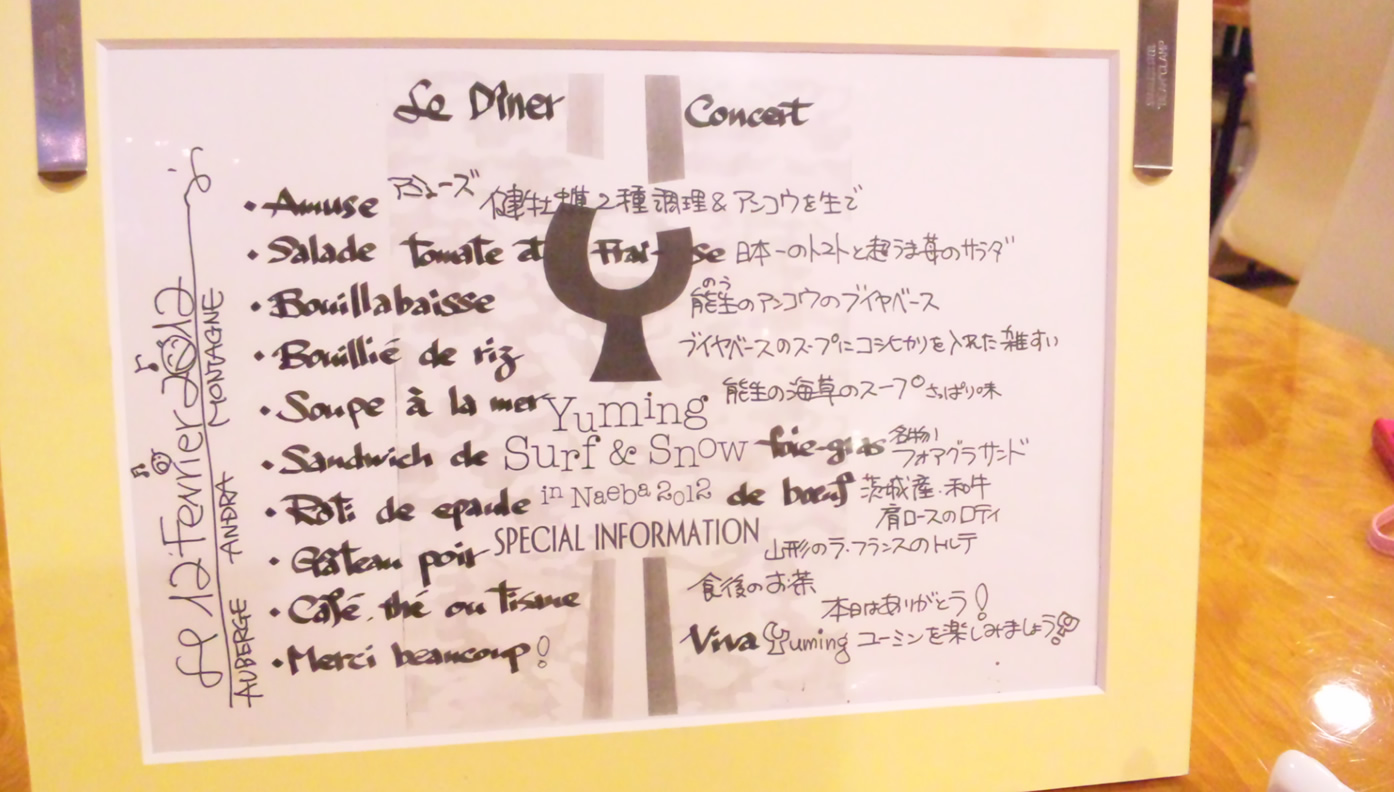 Le Dîner Concert
• Amuse アミューズ 健牡蠣2種調理&アンコウを生で
• Salade tomate et Frai- se 日本一のトマトと超うま苺のサラダ
• Bouillabaisse 能生のアンコウのブイヤベース
のう
• Bouillié de riz ブイヤベースのスープにコシヒカリを入れた雑すい
• Soupe à la mer 能生の海草のスープ さっぱり味
Yuming
• Sandwich de foie-gras 名物!フォアグラサンド
Surf & Snow
• Rôti de epaule de bœuf 茨城産・和牛
肩ロースのロティ
in Naeba 2012
• Gâteau poir 山形のラ・フランスのトルテ
SPECIAL INFORMATION
• Café, thé ou tisme 食後のお茶
• Merci beaucoup! 本日はありがとう!
Viva Yuming ユーミンを楽しみましょう!
Le 12 Fevrier 2012
AUBERGE ANDRA MONTAGNE